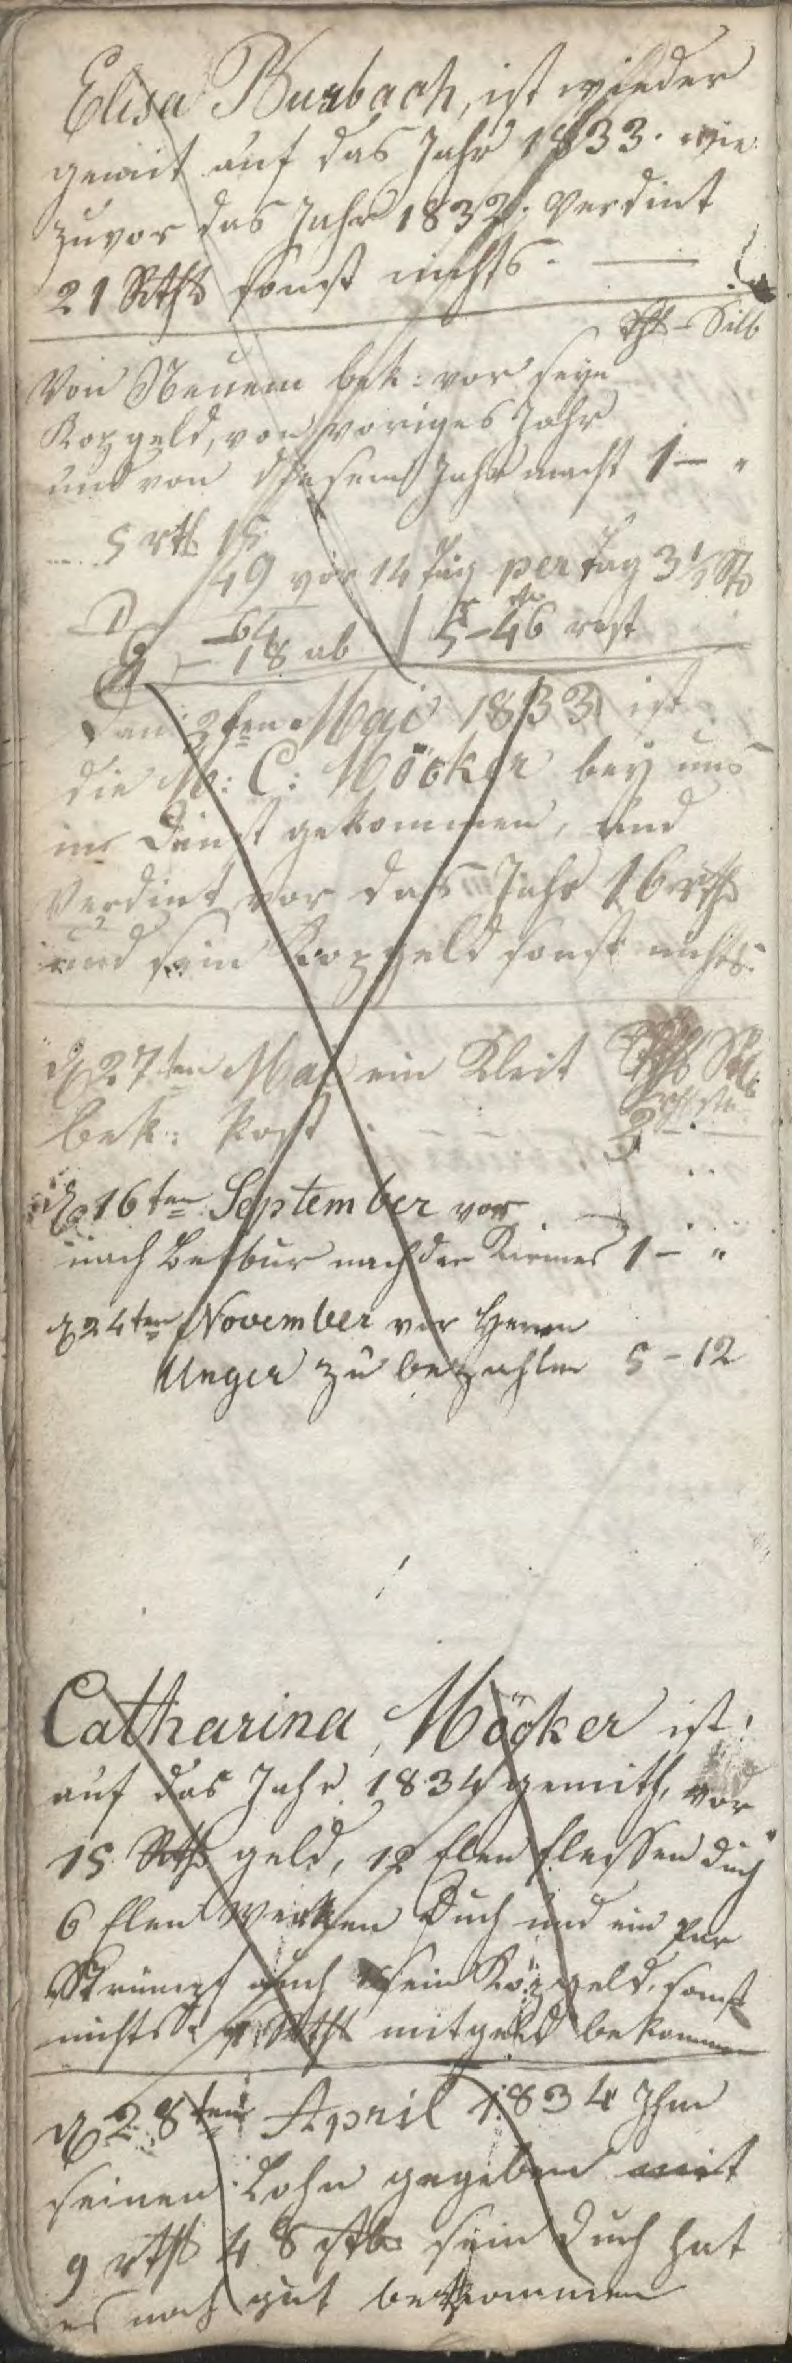 Elisa Burbach, ist wieder
gemit auf das Jahr 1833. wie
zuvor das Jahr 1832; Verdint
21 Rths sonst nichts. —
Rths – Stb
Von Neuem bek: vor sein
Kopgeld, von voriges Jahr
und von diesem Jahr macht 1 – "
5 rths 15
49 vor 14 Tag per tag 3 1/2 Stb
64
– 18 ab 5 – 46 rest
Den 2ten Mai 1833 ist
die M: C: Möcker bey uns
in Dinst gekommen, und
Verdint vor das Jahr 16 rths
und sein Kopgeld sonst nichts.
d 27ten Mai ein Kleit Rths Stb
bek: kost 3 –
d 16ten September vor
nach Bettbur nach der Kirmes 1 – "
d 24ten November vor Herrn
Unger zu bezahlen 5 – 12
Catharina Möcker ist
auf das Jahr 1834 gemith, vor
15 Rths geld, 12 Elen flessen duch
6 Elen Werken Duch und ein par
Strümpf auch sein Kopgeld, sonst
nichts Rths mitgeld bekommen
d 28ten April 1834 Ihm
seinen Lohn gegeben mit
9 rths 48 stb sein duch hat
es noch gut bekommen